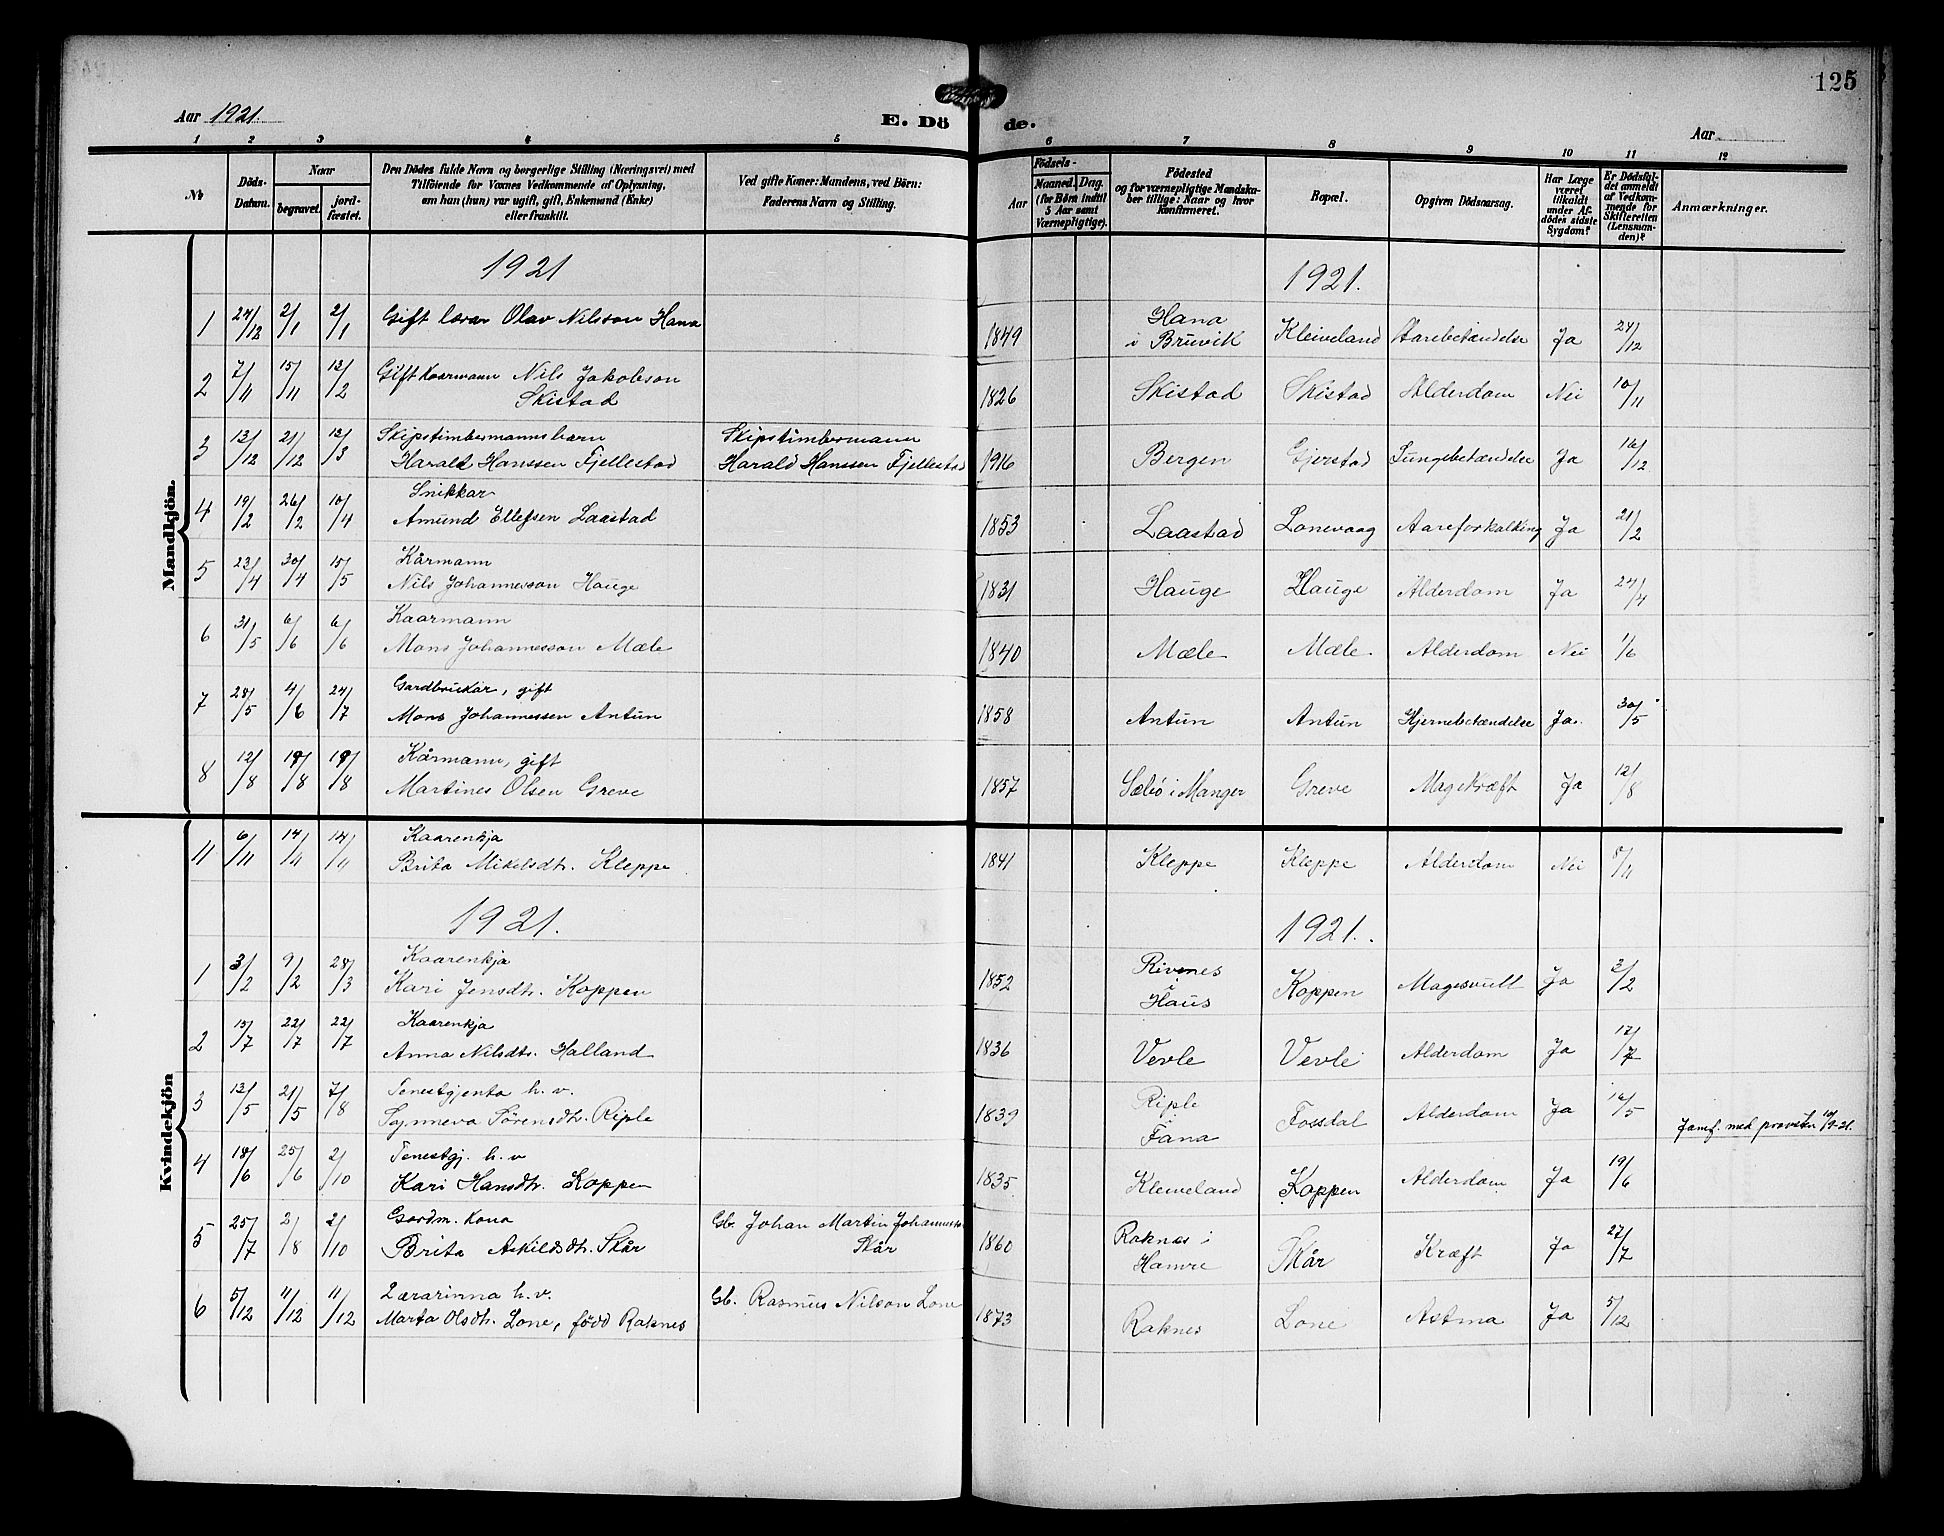 125
Aar 1921.
E. Dö de.
Aar
1 2 3 4 5 6 7 8 9 10 11 12
No
Döds-Datum.
Naar
begravet.
jord-fæstet.
Den Dödes fulde Navn og borgerlige Stilling (Næringsvei) med
Tilföiende for Voxnes Vedkommende af Oplysning,
om han (hun) var ugift, gift, Enkemand (Enke)
eller fraskilt.
Ved gifte Koner: Mandens, ved Börn:
Faderens Navn og Stilling.
Födsels-
Aar
Maaned. Dag.
(for Börn indtil
5 Aar samt
Værnepligtige).
Födested
og for værnepligtige Mandska-
ber tillige: Naar og hvor
Konfirmeret.
Bopæl.
Opgiven Dödsaarsag.
Har Læge
været
tilkaldt
under Af-
dödes sidste
Sygdom?
Er Dödsfal-
det anmeldt
af Vedkom-
mende for
Skifteretten
(Lensman-
den)?
Anmærkninger.
Mandkjön.
1921 1921.
1 24/12 2/1 2/1 Gift lærar Olav Nilsson Hana 1849 Hana i Bruvik Kleiveland Aarebetændelse Ja 24/12
2 7/11 15/11 12/2 Gift Kaarmann Nils Jakobson Skistad 1826 Skistad Skistad Alderdom Nei 10/11
3 13/12 21/12 12/3 Skipstimbermannsbarn
Harald Hanssen Fjellestad Skipstimbermann Harald Hanssen Fjellestad 1916 Bergen Gjerstad Lungebetændelse Ja 16/12
4 19/2 26/2 10/4 Snikkar
Amund Ellefsen Laastad 1853 Laastad Lonevaag Aareforkalking Ja 21/2
5 23/4 30/4 15/5 Kårmann
Nils Johannesson Hauge 1831 Hauge Hauge Alderdom Ja 24/4
6 31/5 6/6 6/6 Kaarmann
Mons Johannesson Mæle 1840 Mæle Mæle Alderdom Nei 1/6
7 28/5 4/6 24/7 Gardbrukar, gift
Mons Johannessen Antun 1858 Antun Antun Hjernebetændelse Ja. 30/5
8 12/8 18/8 18/8 Kårmann, gift
Martines Olsen Greve 1857 Sæbö i Manger Greve Magekræft Ja 12/8
Kvindekjön
11 6/11 14/11 14/11 Kaarenkja
Brita Mikelsdtr. Kleppe 1841 Kleppe Kleppe Alderdom Nei 8/11
1921. 1921.
1 3/2 9/2 28/3 Kaarenkja
Kari Jensdtr. Koppen 1852 Rivenes i Haus Koppen Magesvull Ja 3/2
2 15/7 22/7 22/7 Kaarenkja
Anna Nilsdtr. Halland 1836 Vevle Vevle Alderdom Ja 17/7
3 13/5 21/5 7/8 Tenestgjenta h. v.
Synneva Sörensdtr. Riple 1839 Riple Fana Fossdal Alderdom Ja 14/5 Jamf. med provsten 10/9-21.
4 18/6 25/6 2/10 Tenestgj. h. v
Kari Hansdtr. Koppen 1835 Kleiveland Koppen Alderdom Ja 19/6
5 25/7 2/8 2/10 Gardm. Kona
Brita Askildsdtr. Skår Gb. Johan Martin Johannesson Skår 1860 Raknes i Hamre Skår Kræft Ja 27/7
6 5/12 11/12 11/12 Lærarinna h. v.
Marta Olsdtr. Lone, född Raknes Gb. Rasmus Nilson Lone 1873 Raknes Lone Astma Ja 5/12